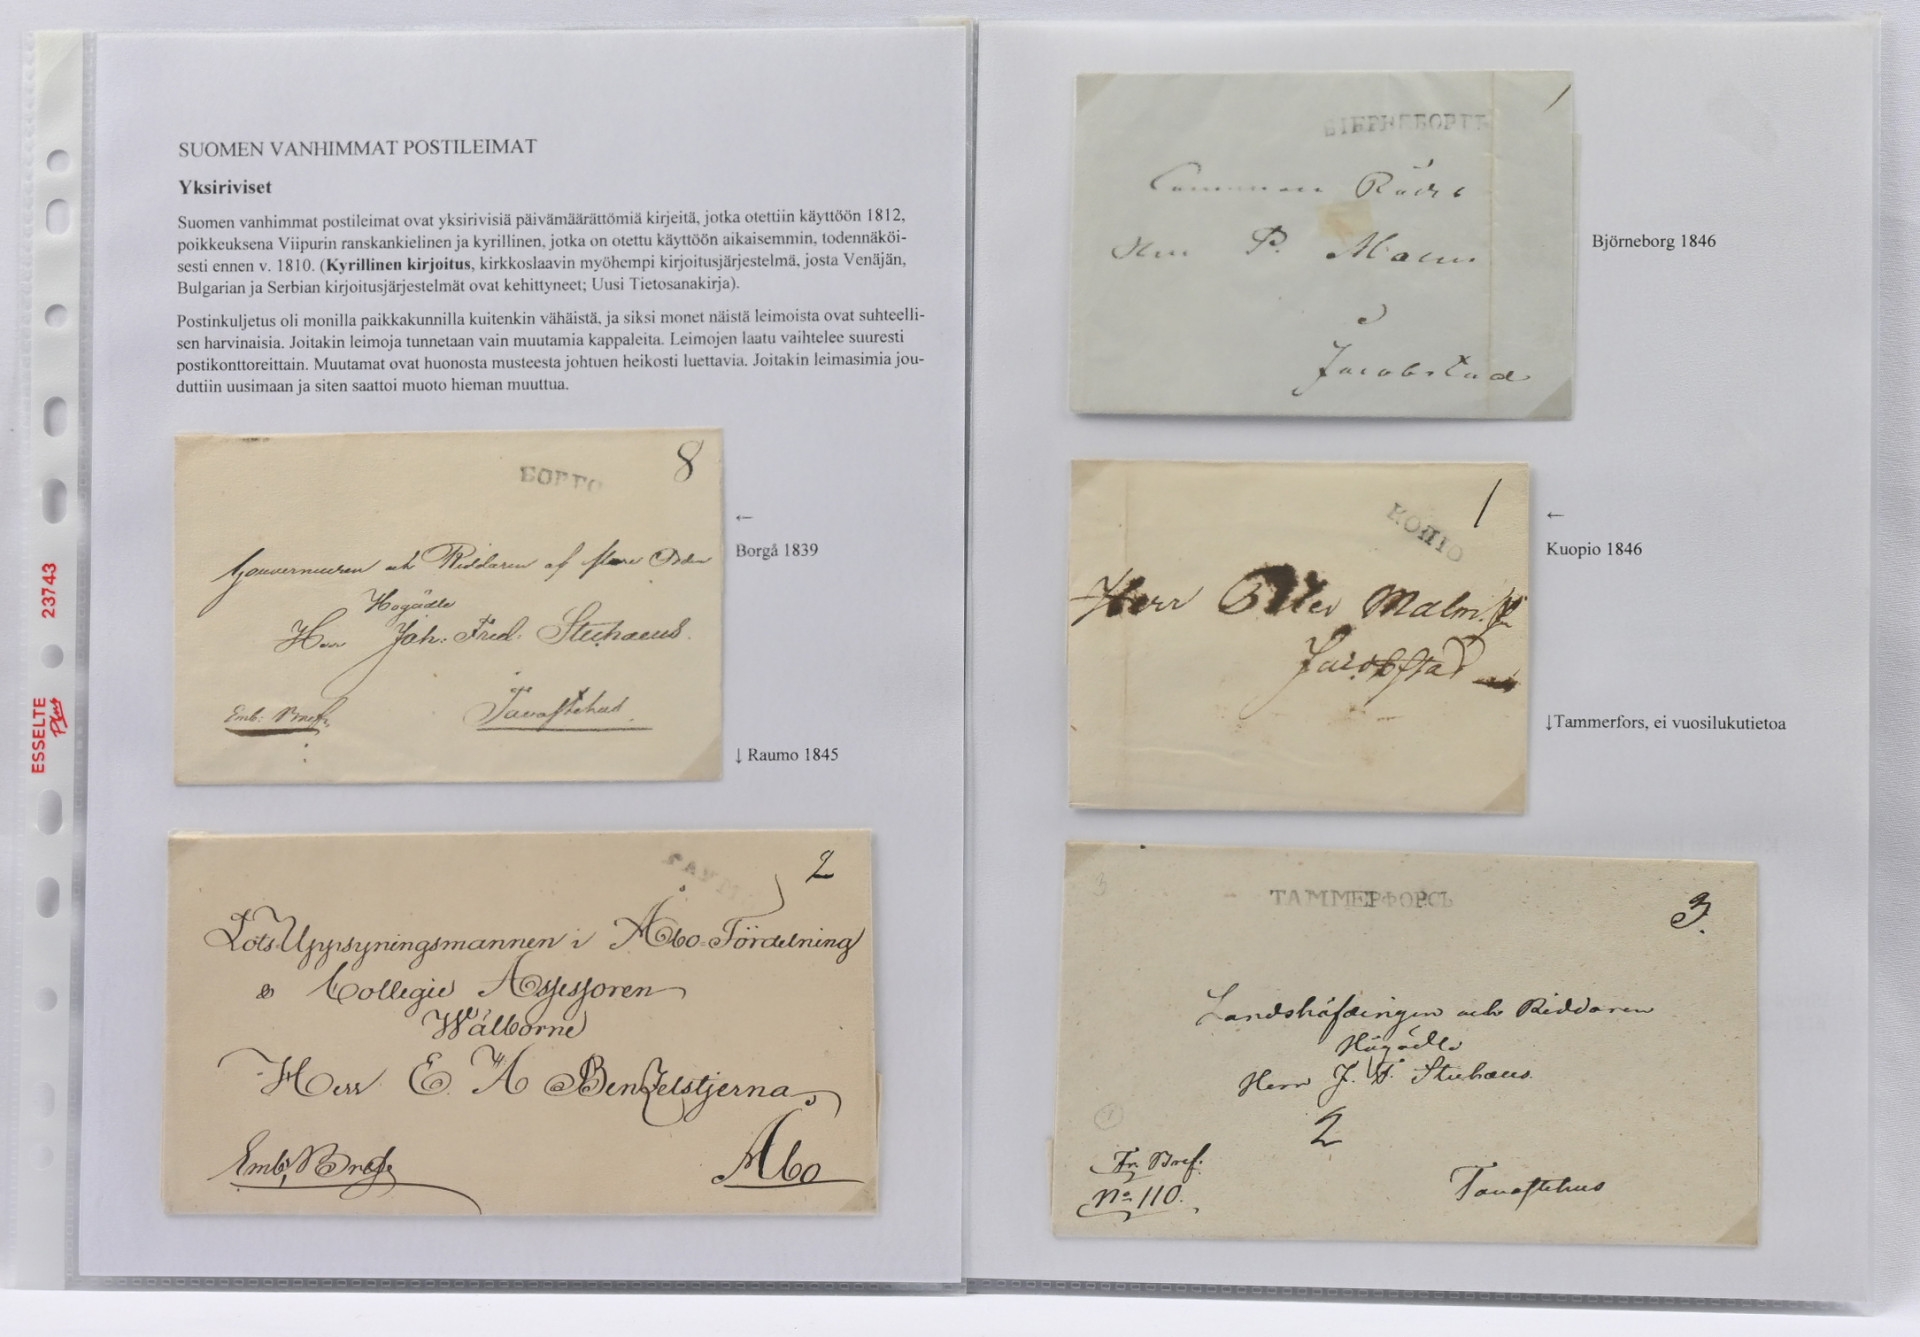 ESSELTE
Plus
23743
SUOMEN VANHIMMAT POSTILEIMAT
Yksiriviset
Suomen vanhimmat postileimat ovat yksirivisiä päivämäärättömiä kirjeitä, jotka otettiin käyttöön 1812,
poikkeuksena Viipurin ranskankielinen ja kyrillinen, jotka on otettu käyttöön aikaisemmin, todennäköi-
sesti ennen v. 1810. (Kyrillinen kirjoitus, kirkkoslaavin myöhempi kirjoitusjärjestelmä, josta Venäjän,
Bulgarian ja Serbian kirjoitusjärjestelmät ovat kehittyneet; Uusi Tietosanakirja).
Postinkuljetus oli monilla paikkakunnilla kuitenkin vähäistä, ja siksi monet näistä leimoista ovat suhteelli-
sen harvinaisia. Joitakin leimoja tunnetaan vain muutamia kappaleita. Leimojen laatu vaihtelee suuresti
postikonttoreittain. Muutamat ovat huonosta musteesta johtuen heikosti luettavia. Joitakin leimasimia jou-
duttiin uusimaan ja siten saattoi muoto hieman muuttua.
БОРГО
8
Gouverneuren och Riddaren af flere Orden
Högädle
Herr Joh: Fred. Stichaeus.
Tavastehus
Emb: Bref.
←
Borgå 1839
↓ Raumo 1845
2
Lots Uppsyningsmannen i Åbo Fördelning
Collegie Assessoren
Wälborne
Herr E. A Benzelstjerna
Emb. Bref
Åbo
1
БІЕРНЕБОРГЪ
Commerce Rådet
Herr P. Malm
Jacobstad
Björneborg 1846
1
КОПІО
Herr Otto Malm
Jacobstad
←
Kuopio 1846
↓Tammerfors, ei vuosilukutietoa
3
ТАММЕРФОРСЪ
3.
Landshöfdingen och Riddaren
Högädle
Herr J. F. Stichaeus.
2
Fr. Bref.
No 110.
Tavastehus